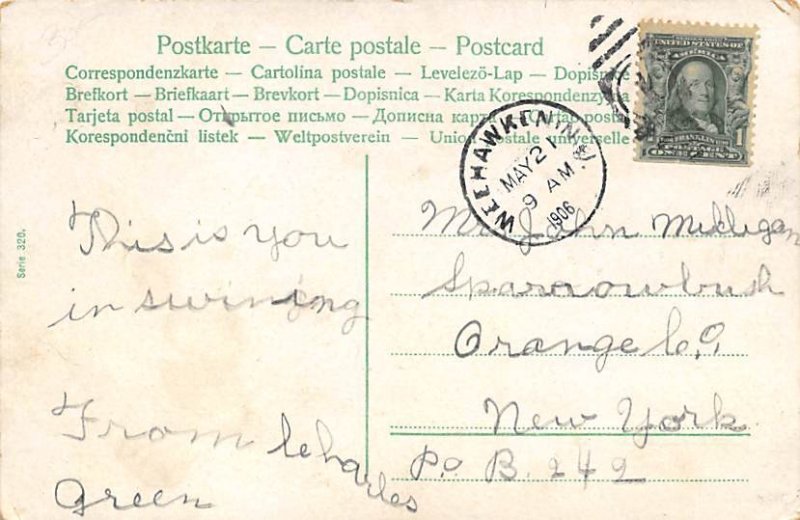 Postkarte — Carte postale — Postcard
Correspondenzkarte — Cartolina postale — Levelezö-Lap — Dopisnice
Brefkort — Briefkaart — Brevkort — Dopisnica — Karta Korespondenzyjna
Tarjeta postal — Открытое письмо — Дописна карта — postal
Korespondenčni listek — Weltpostverein — Union postale universelle
UNITED STATES OF
AMERICA
FRANKLIN
POSTAGE
ONE CENT
WEEHAWKEN, N.J.
MAY 21
9 AM
1906
Serie 320.
This is you
in swinging
From Charles
Green
Mr. John Milligan
Sparrowbush
Orange Co
New York
P.o B. 242